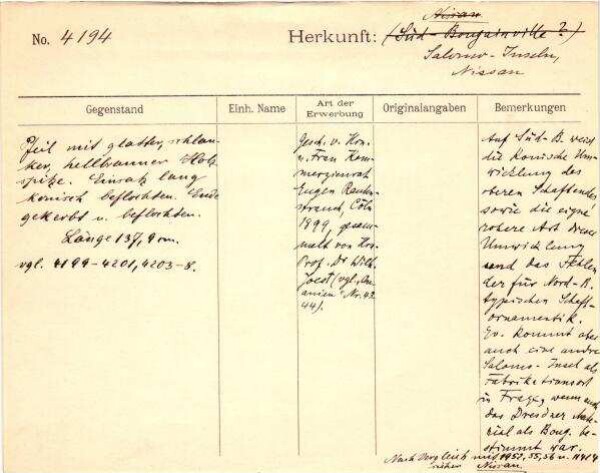 No. 4194
Herkunft:
Nissan
(Süd-Bougainville?)
Salomo-Inseln,
Nissan
Gegenstand
Einh. Name
Art der
Erwerbung
Originalangaben
Bemerkungen
Pfeil mit glatter, schlan-
ker, hellbrauner Holz-
spitze. Einsatz lang
konisch beflochten. Ende
gekerbt u. beflochten.
Länge 137,9 cm.
vgl. 4199-4201, 4203-8.
Gesch. v. Hrn.
u. Frau Kom-
merzienrat
Eugen Rauten-
strauch, Cöln
1899, gesam-
melt von Hrn.
Prof. Dr. Wilh.
Joest (vgl.
Nr. 42
44).
Auf Süd-B. weist
die konische Um-
wicklung des
oberen Schaftendes
sowie die
rohere Art dieser
Umwicklung
und das Fehlen
der für Nord-B.
typischen Schaft-
ornamentik.
Ev. kommt aber
auch eine andre
Salomo-Insel als
Fabrikationsort
in Frage, wenn auch
das Dresdner Mate-
rial als Boug. be-
stimmt war.
Nach Vergleich mit 1952, 55, 56 u. 11414
sicher Nissan